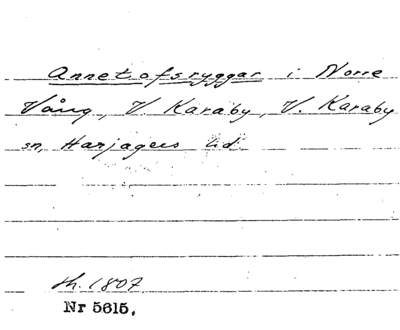 Annetofsryggar i Norre
Vång, V. Karaby, V. Karaby
sn, Harjagers hd.
th. 1807
Nr 5615.